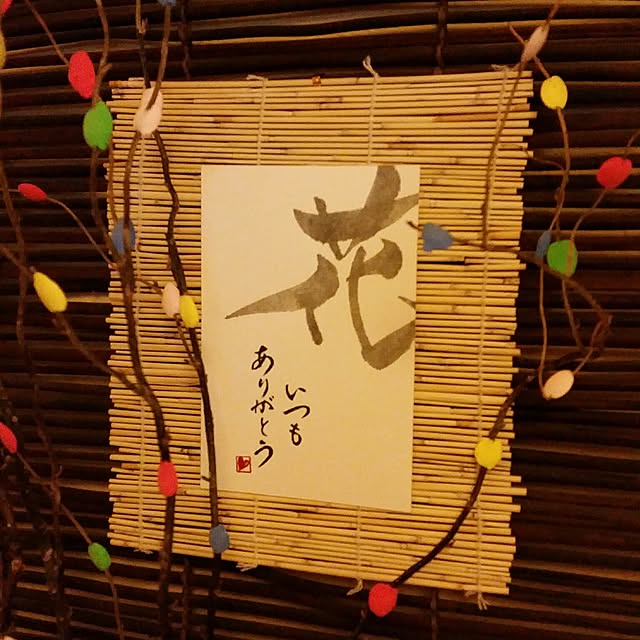 花
いつも
ありがとう